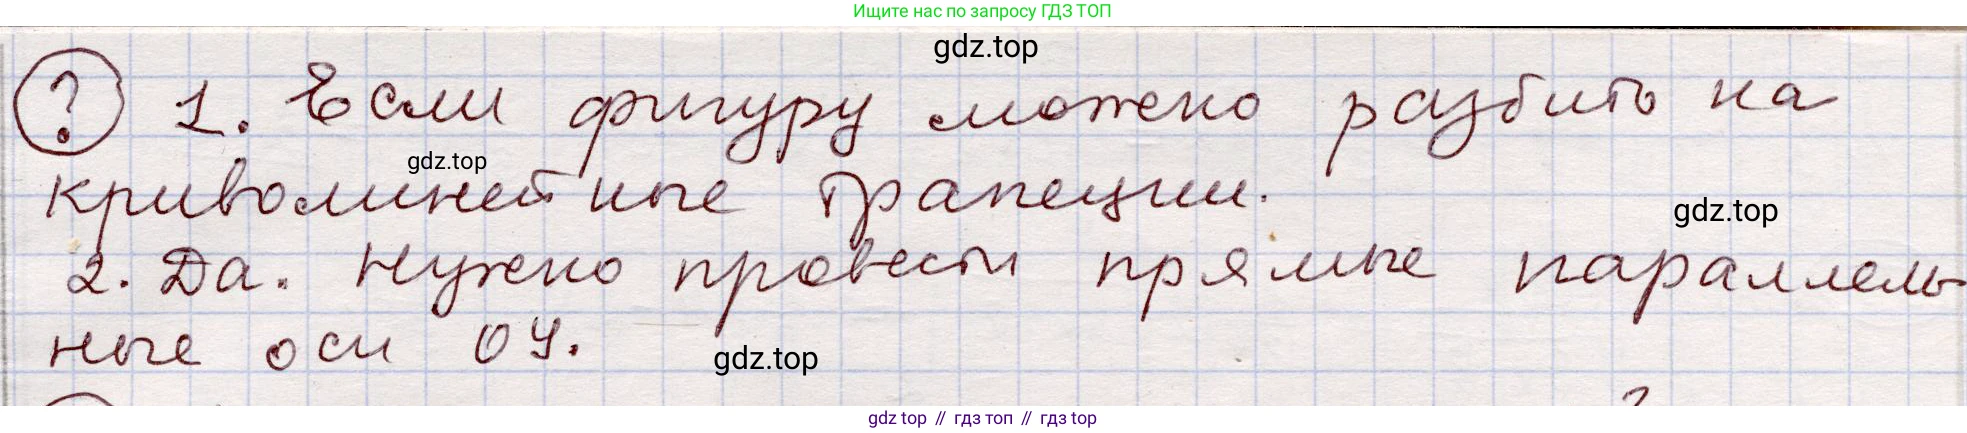 Ищите нас по запросу ГДЗ ТОП
gdz.top
? 1. Если фигуру можно разбить на
gdz.top
криволинейные трапеции.
gdz.top
2. Да. Нужно провести прямые параллель
ные оси OY.
gdz.top
gdz top // гдз топ // гдз top